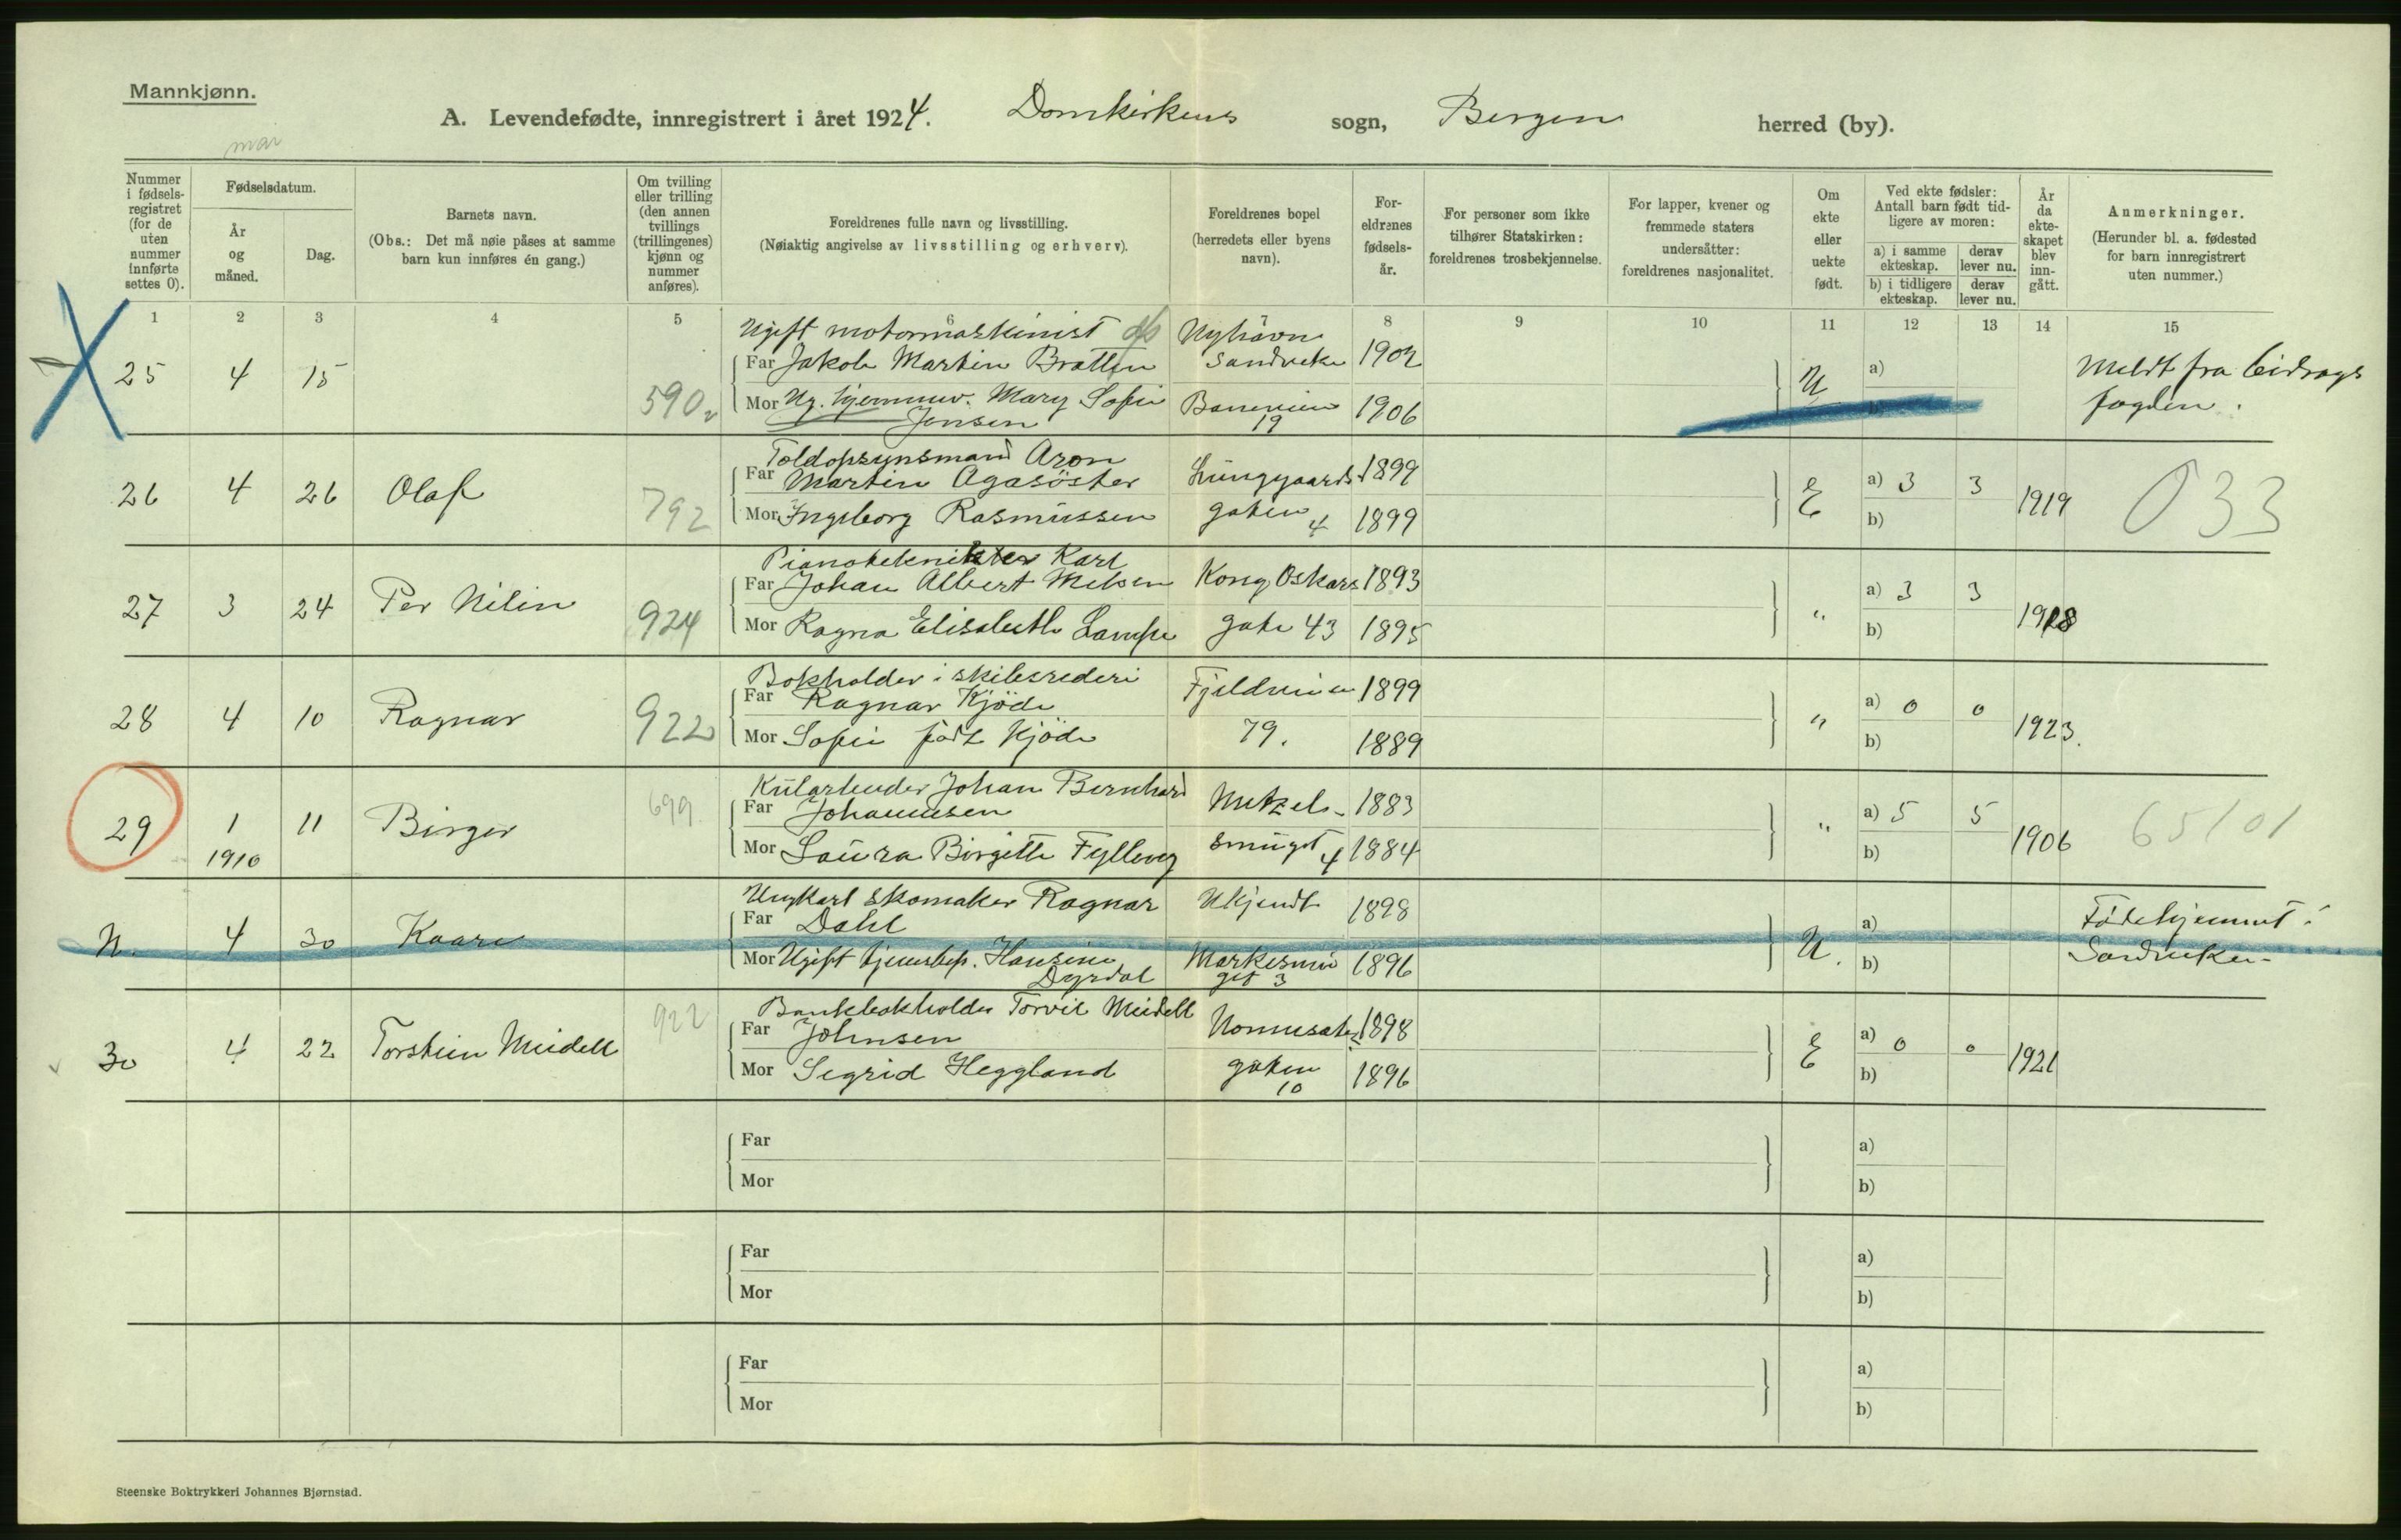 Mannkjønn.
A. Levendefødte, innregistrert i året 1924. Domkirkens sogn, Bergen herred (by).
mai
Nummer i fødsels-registret (for de uten nummer innførte settes 0).
Fødselsdatum.
År og måned.
Dag.
Barnets navn.
(Obs.: Det må nøie påses at samme barn kun innføres én gang.)
Om tvilling eller trilling (den annen tvillings (trillingenes) kjønn og nummer anføres).
Foreldrenes fulle navn og livsstilling.
(Nøiaktig angivelse av livsstilling og erhverv).
Foreldrenes bopel (herredets eller byens navn).
For-eldrenes fødsels-år.
For personer som ikke tilhører Statskirken: foreldrenes trosbekjennelse.
For lapper, kvener og fremmede staters undersåtter: foreldrenes nasjonalitet.
Om ekte eller uekte født.
Ved ekte fødsler: Antall barn født tid-ligere av moren:
a) i samme ekteskap.
derav lever nu.
b) i tidligere ekteskap.
derav lever nu.
År da ekte-skapet blev inn-gått.
Anmerkninger.
(Herunder bl. a. fødested for barn innregistrert uten nummer.)
1 2 3 4 5 6 7 8 9 10 11 12 13 14 15
Ugift motormaskinist Nyhavn
25 4 15 Far Jakob Martin Bratten Sandviken 1902 U a) Meldt fra bidrags
590 Mor Ug. hjemmev. Mary Sofie 1906 b) fogden.
Jensen 19
Toldopsynsmand Aron
26 4 26 Olaf Far Martin Agasöster Lungegaards 1899 E a) 3 3 1919 033
792 Mor Ingeborg Rasmussen gaten 4 1899 b)
Karl
27 3 24 Per Nilin Far Johan Albert Kong Oskars 1893 " a) 3 3 1918
924 Mor Ragna Elisabeth Lampe gate 43 1895 b)
Bokholder i skibsrederi
28 4 10 Ragnar Far Ragnar Kjöde Fjeldveien 1899 " a) 0 0 1923.
922 Mor Sofie født Kjöde 79. 1889 b)
Kularbeider Johan Bernhard
29 1 11 Birger 699. Far Johannesen 1883 " a) 5 5 1906 65101
1910 Mor Laura Birgitte Fylling smuget 4 1884 b)
Ungkarl skomaker Ragnar Ukjendt 1898
N. 4 30 Kaare Far Dahl U. a) Fødehjemmet i
Mor Ugift tjenestep. Hansine Markesmu 1896 b) Sandviken
Dyrdal get 3
Bankbokholder Torvil Meidell
30 4 22 Torstein Meidell 922 Far Johnsen Nonneseter 1898 E a) 0 0 1921
Mor Sigrid Heggland gaten 10 1896 b)
Far a)
Mor b)
Far a)
Mor b)
Far a)
Mor b)
Steenske Boktrykkeri Johannes Bjørnstad.